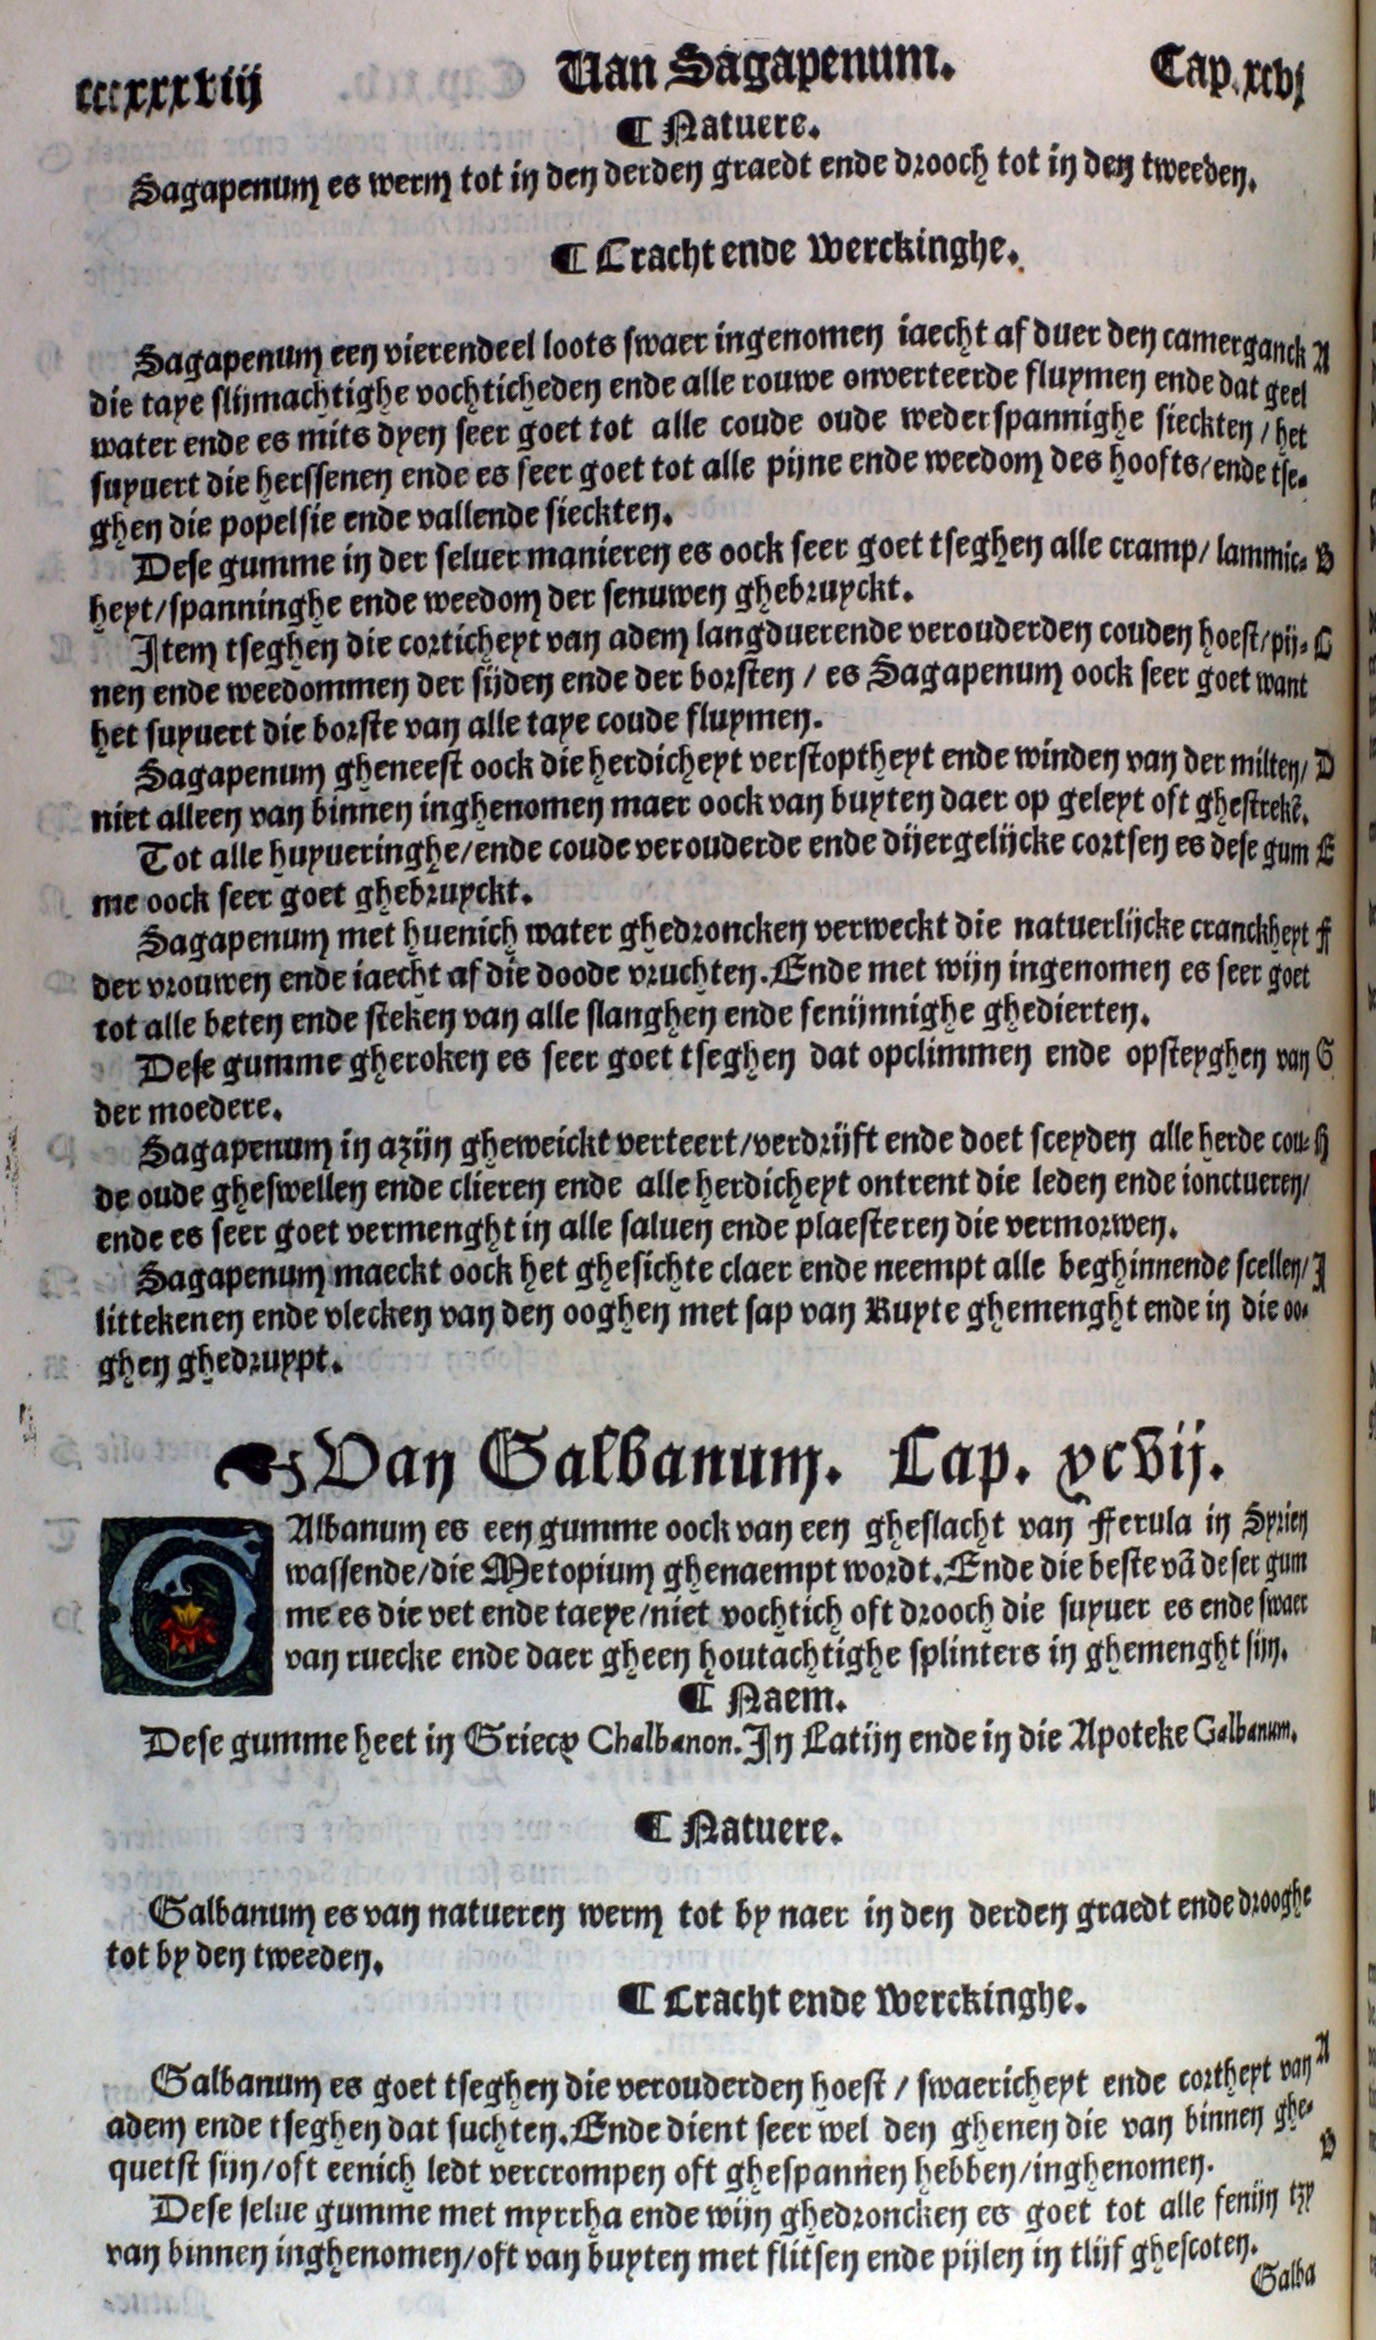 cccxxxviij Van Sagapenum. Cap. xcvj
¶ Natuere.
Sagapenum es werm tot in den derden graedt ende drooch tot in den tweeden.
¶ Cracht ende Werckinghe.
Sagapenum een vierendeel loots swaer ingenomen iaecht af duer den camerganck A
die taye slijmachtighe vochticheden ende alle rouwe onverteerde fluymen ende dat geel
water ende es mits dyen seer goet tot alle coude oude wederspannighe sieckten / het
suyuert die herssenen ende es seer goet tot alle pijne ende weedom des hoofts/ende tse-
ghen die popelsie ende vallende sieckten.
Dese gumme in der seluer manieren es oock seer goet tseghen alle cramp/ lammic- B
heyt/spanninghe ende weedom der senuwen ghebruyckt.
Item tseghen die corticheyt van adem langduerende verouderden couden hoest/pij- C
nen ende weedommen der sijden ende der borsten / es Sagapenum oock seer goet want
het suyuert die borste van alle taye coude fluymen.
Sagapenum gheneest oock die herdicheyt verstoptheyt ende winden van der milten/ D
niet alleen van binnen inghenomen maer oock van buyten daer op geleyt oft ghestrekē.
Tot alle huyueringhe/ende coude verouderde ende dijergelijcke cortsen es dese gum E
me oock seer goet ghebruyckt.
Sagapenum met huenich water ghedroncken verweckt die natuerlijcke cranckheyt F
der vrouwen ende iaecht af die doode vruchten. Ende met wijn ingenomen es seer goet
tot alle beten ende steken van alle slanghen ende fenijnnighe ghedierten.
Dese gumme gheroken es seer goet tseghen dat opclimmen ende opsteyghen van G
der moedere.
Sagapenum in azijn gheweickt verteert/verdrijft ende doet sceyden alle herde cou- H
de oude gheswellen ende clieren ende alle herdicheyt ontrent die leden ende ionctueren/
ende es seer goet vermenght in alle saluen ende plaesteren die vermorwen.
Sagapenum maeckt oock het ghesichte claer ende neempt alle beghinnende scellen/ I
littekenen ende vlecken van den ooghen met sap van Ruyte ghemenght ende in die oo-
ghen ghedruypt.
Van Galbanum. Cap. xcvij.
GAlbanum es een gumme oock van een gheslacht van Ferula in Syrien
wassende/die Metopium ghenaempt wordt. Ende die beste vā deser gum
me es die vet ende taeye/niet vochtich oft drooch die suyuer es ende swaer
van ruecke ende daer gheen houtachtighe splinters in ghemenght sijn.
¶ Naem.
Dese gumme heet in Griecx Chalbanon. In Latijn ende in die Apoteke Galbanum.
¶ Natuere.
Galbanum es van natueren werm tot by naer in den derden graedt ende drooghe
tot by den tweeden.
¶ Cracht ende Werckinghe.
Galbanum es goet tseghen die verouderden hoest / swaericheyt ende cortheyt van A
adem ende tseghen dat suchten. Ende dient seer wel den ghenen die van binnen ghe-
quetst sijn/oft eenich ledt vercrompen oft ghespannen hebben/inghenomen. B
Dese selue gumme met myrrha ende wijn ghedroncken es goet tot alle fenijn tzy
van binnen inghenomen/oft van buyten met flitsen ende pijlen in tlijf ghescoten.
Galba